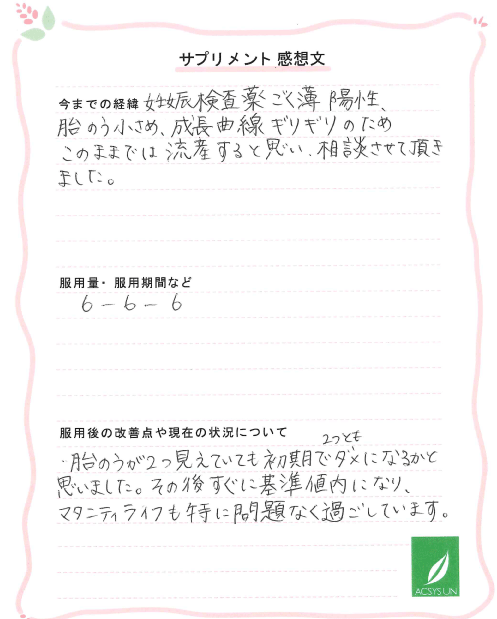 サプリメント 感想文
今までの経緯 妊娠検査薬ごく薄陽性、
胎のう小さめ、成長曲線ギリギリのため
このままでは流産すると思い、相談させて頂き
ました。
服用量・服用期間など
6 - 6 - 6
服用後の改善点や現在の状況について
2つとも
・胎のうが2つ見えていても初期でダメになるかと
思いました。その後すぐに基準値内になり、
マタニティライフも特に問題なく過ごしています。
ACSYSUN